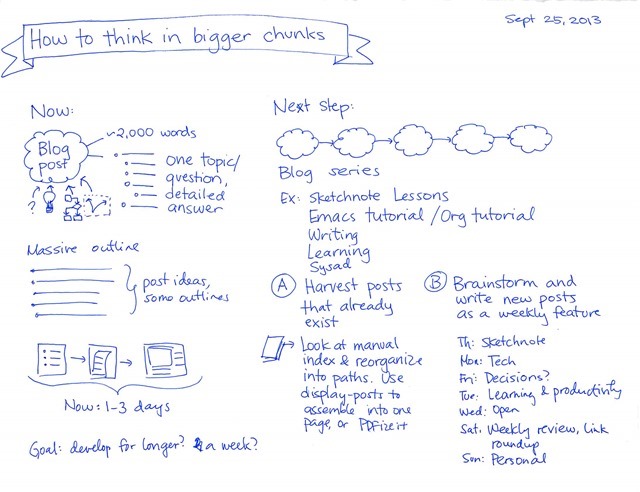 How to think in bigger chunks
Sept 25, 2013
Now:
Blog
post
~2,000 words
one topic/
question,
detailed
answer
?
Massive outline
post ideas,
some outlines
Now: 1-3 days
Goal: develop for longer? a week?
Next step:
Blog series
Ex: Sketchnote Lessons
Emacs tutorial / Org tutorial
Writing
Learning
Sysad
A Harvest posts
that already
exist
Look at manual
index & reorganize
into paths. Use
display-posts to
assemble into one
page, or PDFize it
B Brainstorm and
write new posts
as a weekly feature
Th: Sketchnote
Mon: Tech
Fri: Decisions?
Tue: Learning & productivity
Wed: Open
Sat: Weekly review, link
roundup
Sun: Personal